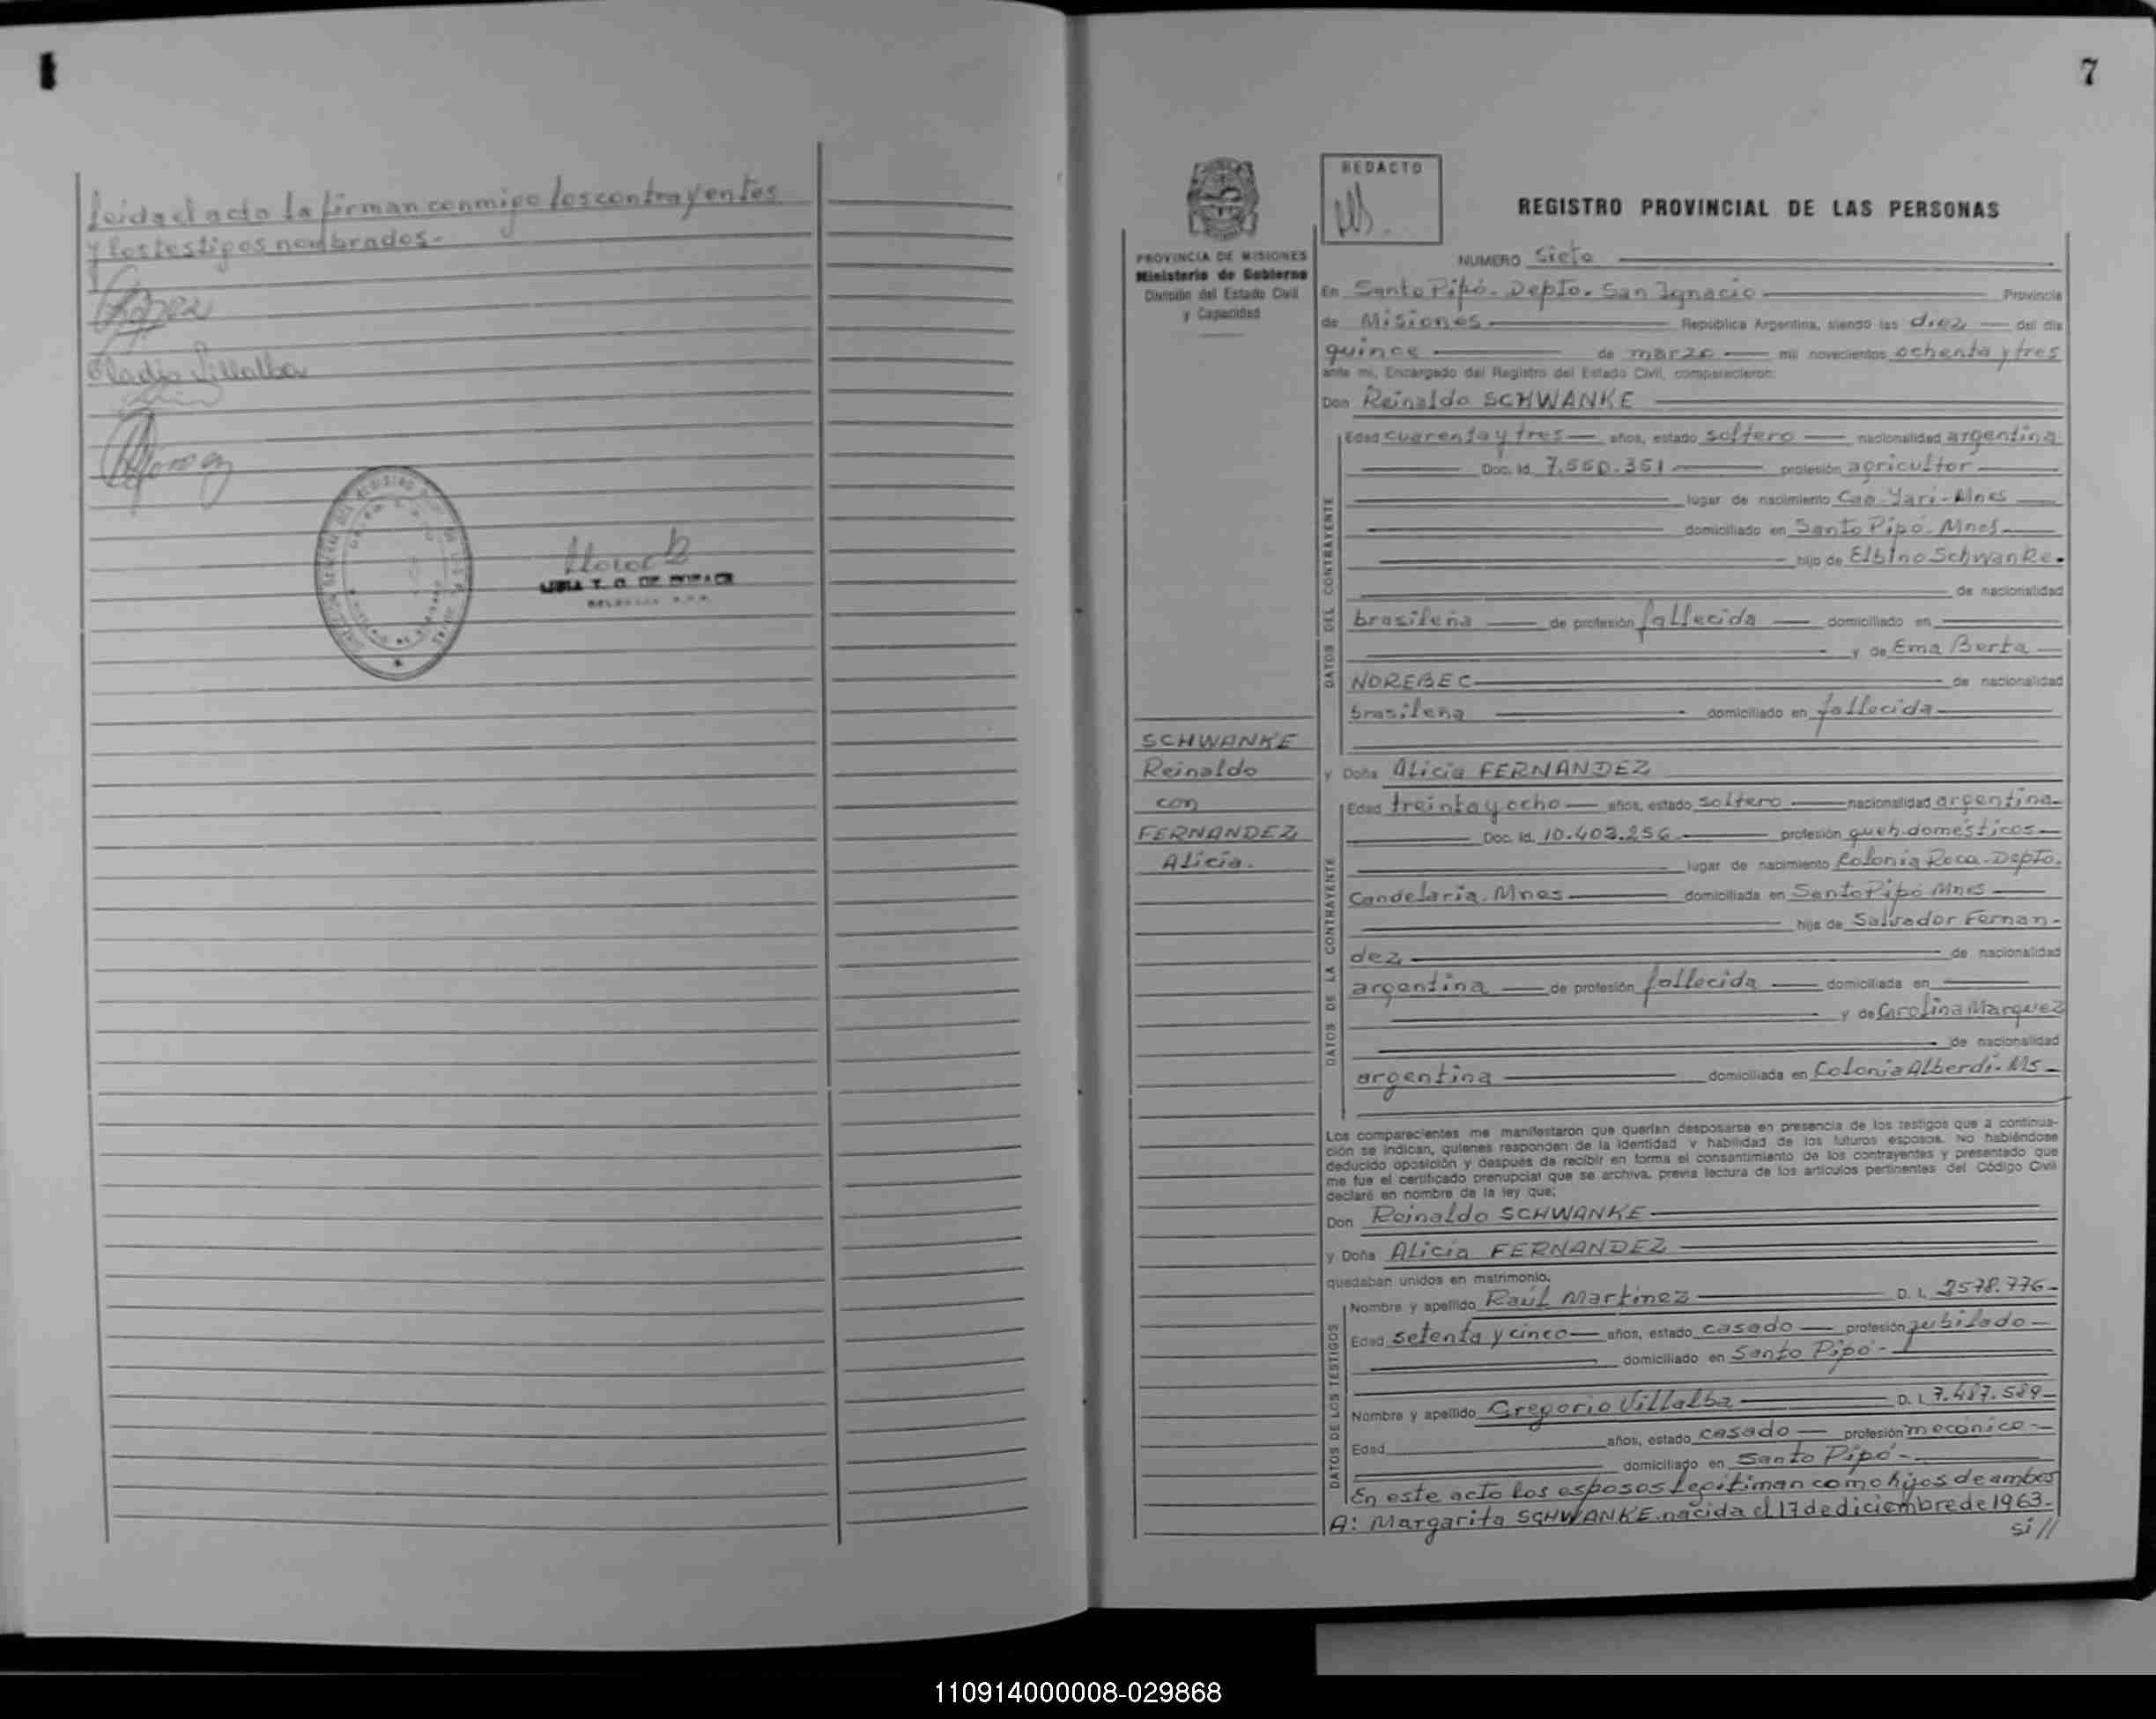 Leida el acto la firman conmigo los contrayentes
y los testigos nombrados.-
Eladio Villalba
7
REDACTO
REGISTRO PROVINCIAL DE LAS PERSONAS
PROVINCIA DE MISIONES
Ministerio de Gobierno
División del Estado Civil
y Capacidad
NUMERO Siete
En Santo Pipó. Depto. San Ignacio Provincia
de Misiones República Argentina, siendo las diez del día
quince de marzo mil novecientos ochenta y tres
ante mi, Encargado del Registro del Estado Civil, comparecieron:
Don Reinaldo SCHWANKE
Edad cuarenta y tres años, estado soltero nacionalidad argentina
Doc. Id. 7.550.351 profesión agricultor
lugar de nacimiento Cao-Yarí-Mnes
domiciliado en Santo Pipó. Mnes.
hijo de Elbino Schwanke.
de nacionalidad
brasileña de profesión fallecida domiciliado en
y de Ema Berta
NOREBEC de nacionalidad
brasileña domiciliado en fallecida
DATOS DEL CONTRAYENTE
SCHWANKE
Reinaldo
con
FERNANDEZ
Alicia.
y Doña Alicia FERNANDEZ
Edad treinta y ocho años, estado soltero nacionalidad argentina
Doc. Id. 10.403.256 profesión queh. domésticos
lugar de nacimiento Colonia Roca-Depto.
Candelaria. Mnes domiciliada en Santo Pipó Mnes
hija de Salvador Fernan-
dez de nacionalidad
argentina de profesión fallecida domiciliada en
y de Carolina Marquez
de nacionalidad
argentina domiciliada en Colonia Alberdi. Ms
DATOS DE LA CONTRAYENTE
Los comparecientes me manifestaron que querían desposarse en presencia de los testigos que a continua-
ción se indican, quienes responden de la identidad y habilidad de los futuros esposos. No habiéndose
deducido oposición y después de recibir en forma el consentimiento de los contrayentes y presentado que
me fue el certificado prenupcial que se archiva, previa lectura de los artículos pertinentes del Código Civil
declaré en nombre de la ley que:
Don Reinaldo SCHWANKE
y Doña Alicia FERNANDEZ
quedaban unidos en matrimonio.
Nombre y apellido Raúl Martinez D. I. 2578.776-
Edad setenta y cinco años, estado casado profesión jubilado
domiciliado en Santo Pipó-
Nombre y apellido Gregorio Villalba D. I. 7.487.589
Edad años, estado casado profesión mecánico
domiciliado en Santo Pipó-
DATOS DE LOS TESTIGOS
En este acto los esposos legitiman como hijos de ambos
A: Margarita SCHWANKE nacida el 17 de diciembre de 1963-
si//
110914000008-029868